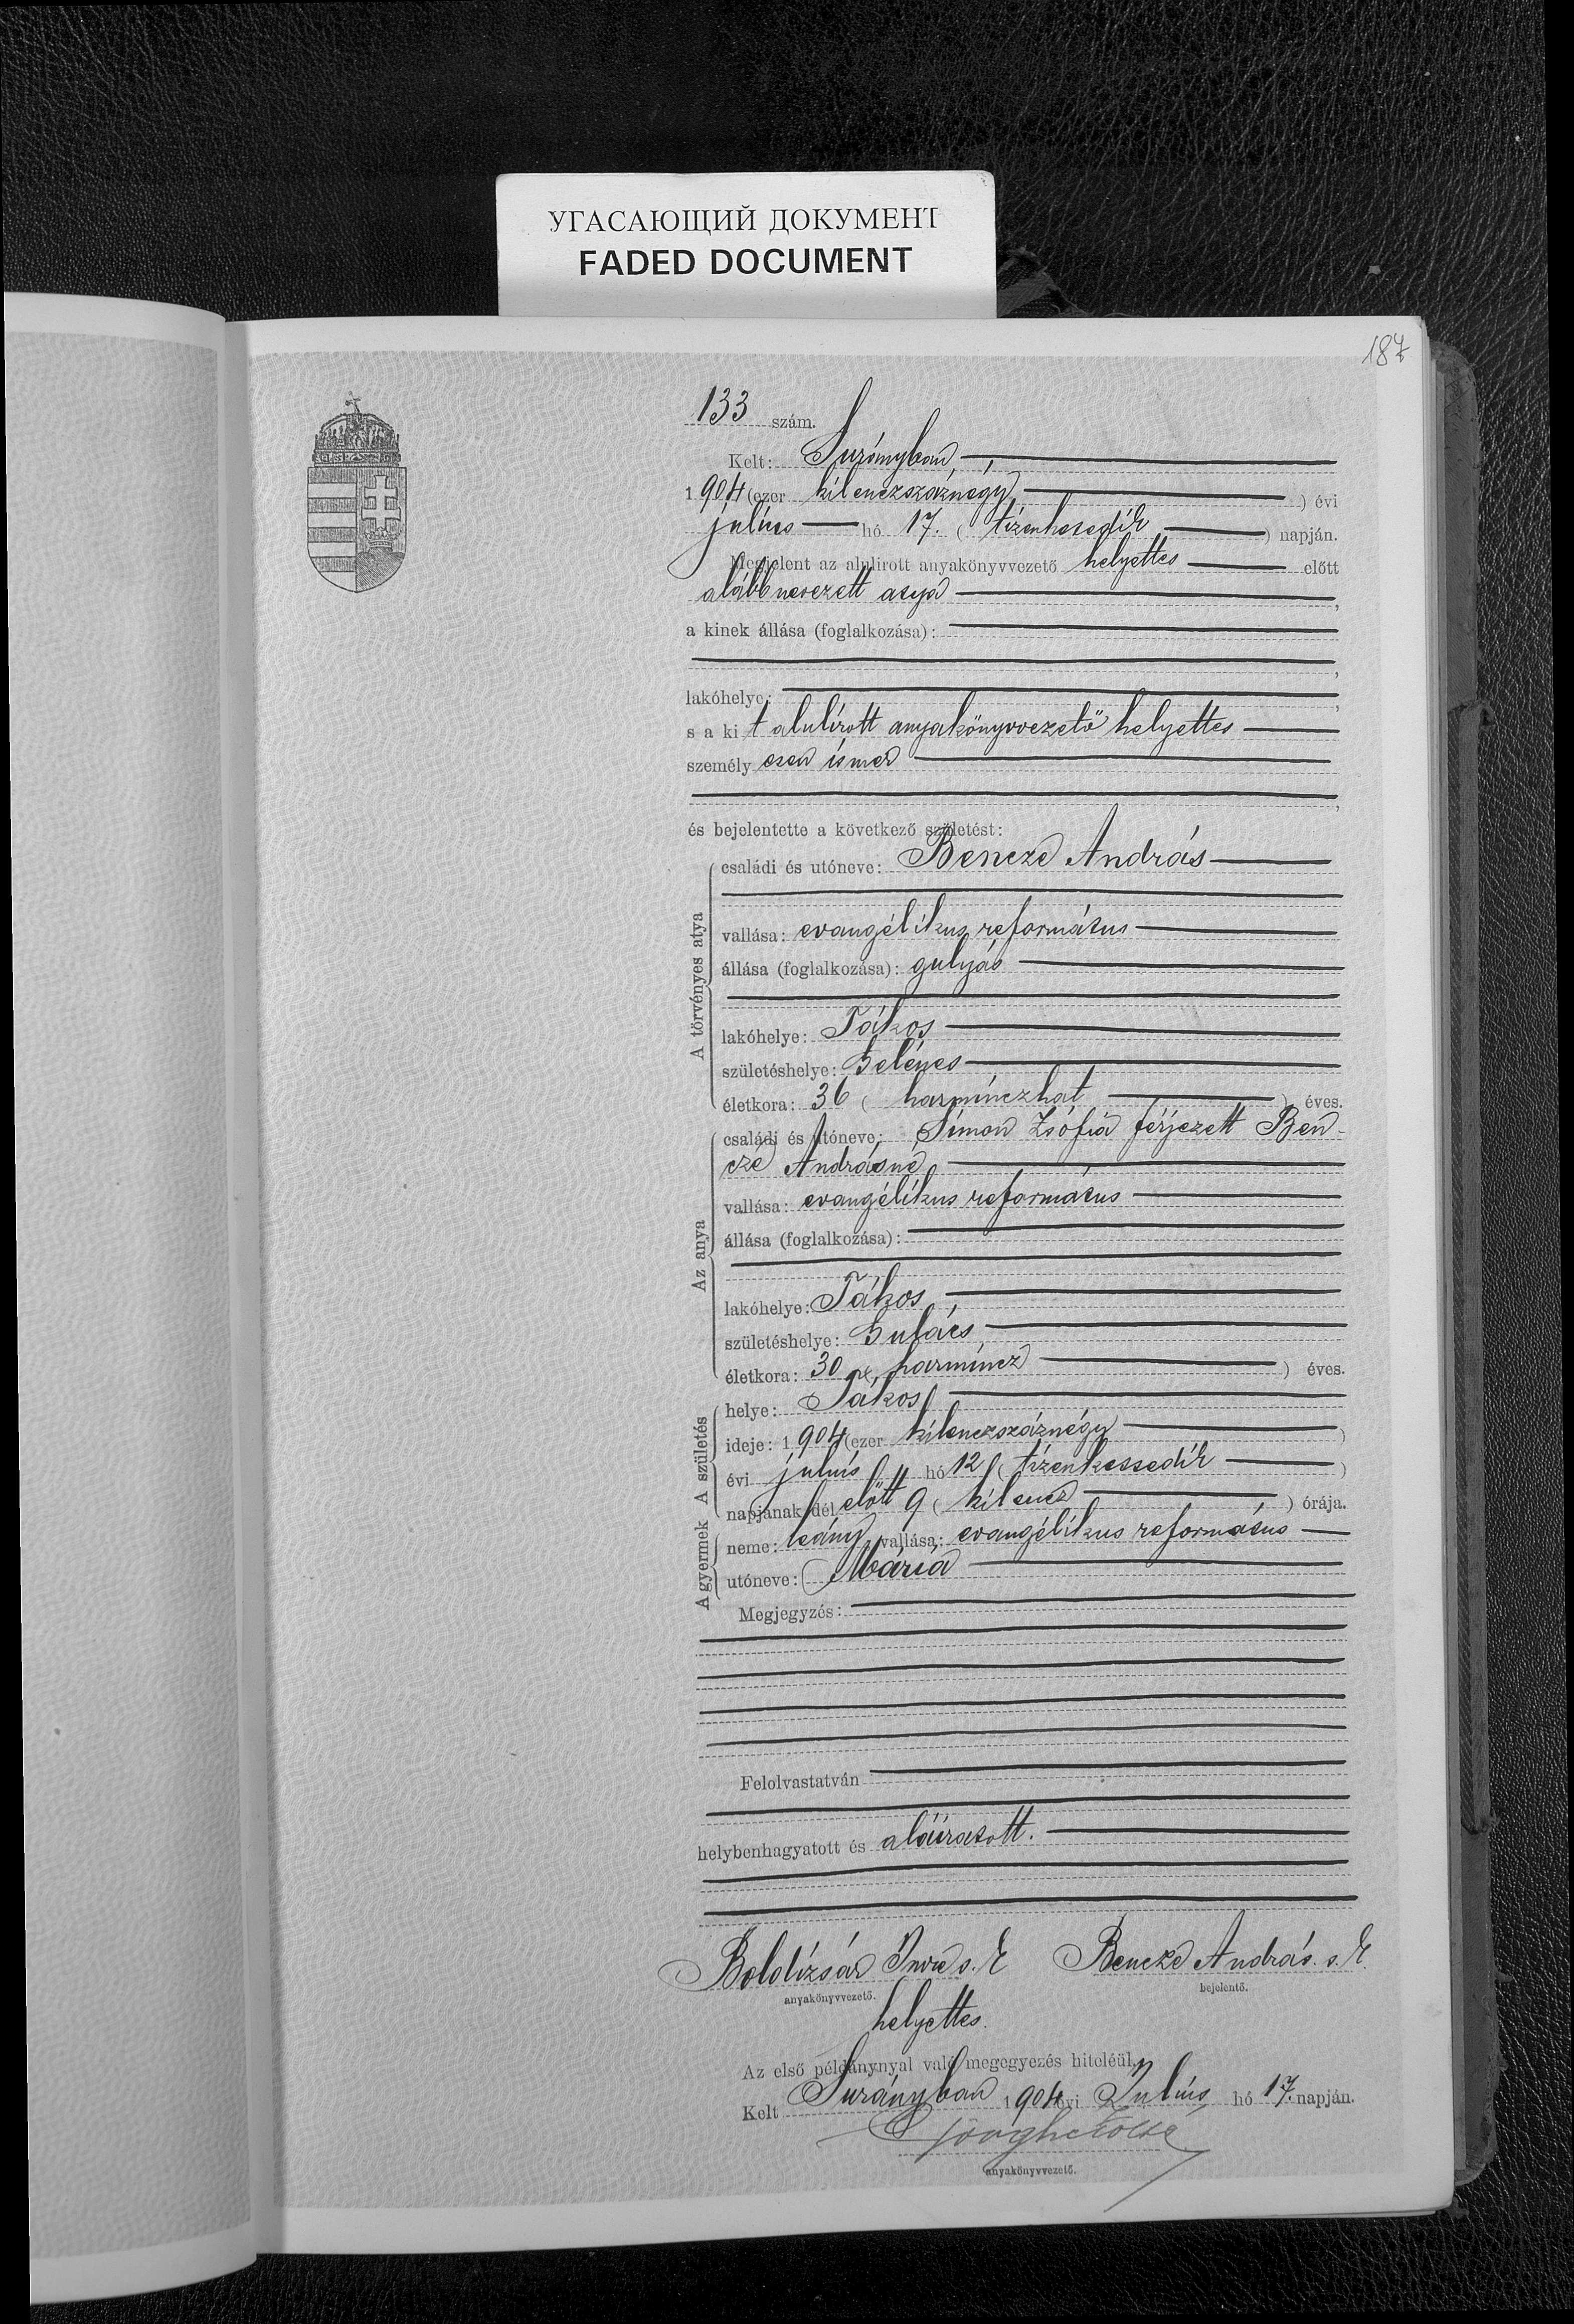 УГАСАЮЩИЙ ДОКУМЕНТ
FADED DOCUMENT
187
133 szám.
Kelt: Surányban
1904 (ezer kilenczszáznégy) évi
július hó 17. (tizenhetedik) napján.
Megjelent az alulirott anyakönyvvezető helyettes előtt
alább nevezett atya,
a kinek állása (foglalkozása):
,
lakóhelye: ,
s a kit alulírott anyakönyvvezető helyettes
személyesen ismer
,
és bejelentette a következő születést:
A törvényes atya
családi és utóneve: Bencze András
vallása: evangélikus református
állása (foglalkozása): gulyás
lakóhelye: Tákos
születéshelye: Gelénes
életkora: 36 (harminczhat) éves.
Az anya
családi és utóneve: Simon Zsófia férjezett Ben-
cze Andrásné
vallása: evangélikus református
állása (foglalkozása):
lakóhelye: Tákos
születéshelye: Gulács
életkora: 30 (harmincz) éves.
A születés
helye: Tákos
ideje: 1904 (ezer kilenczszáznégy)
évi július hó 12 (tizenkettedik)
napjának dél előtt 9 (kilencz) órája.
A gyermek
neme: leány, vallása: evangélikus református
utóneve: Mária
Megjegyzés:
Felolvastatván
helybenhagyatott és aláiratott.
Boldizsár Imre s. k. Bencze András s. k.
anyakönyvvezető. bejelentő.
helyettes.
Az első példánynyal való megegyezés hiteléül.
Kelt Surányban 1904 évi Július hó 17. napján.
anyakönyvvezető.